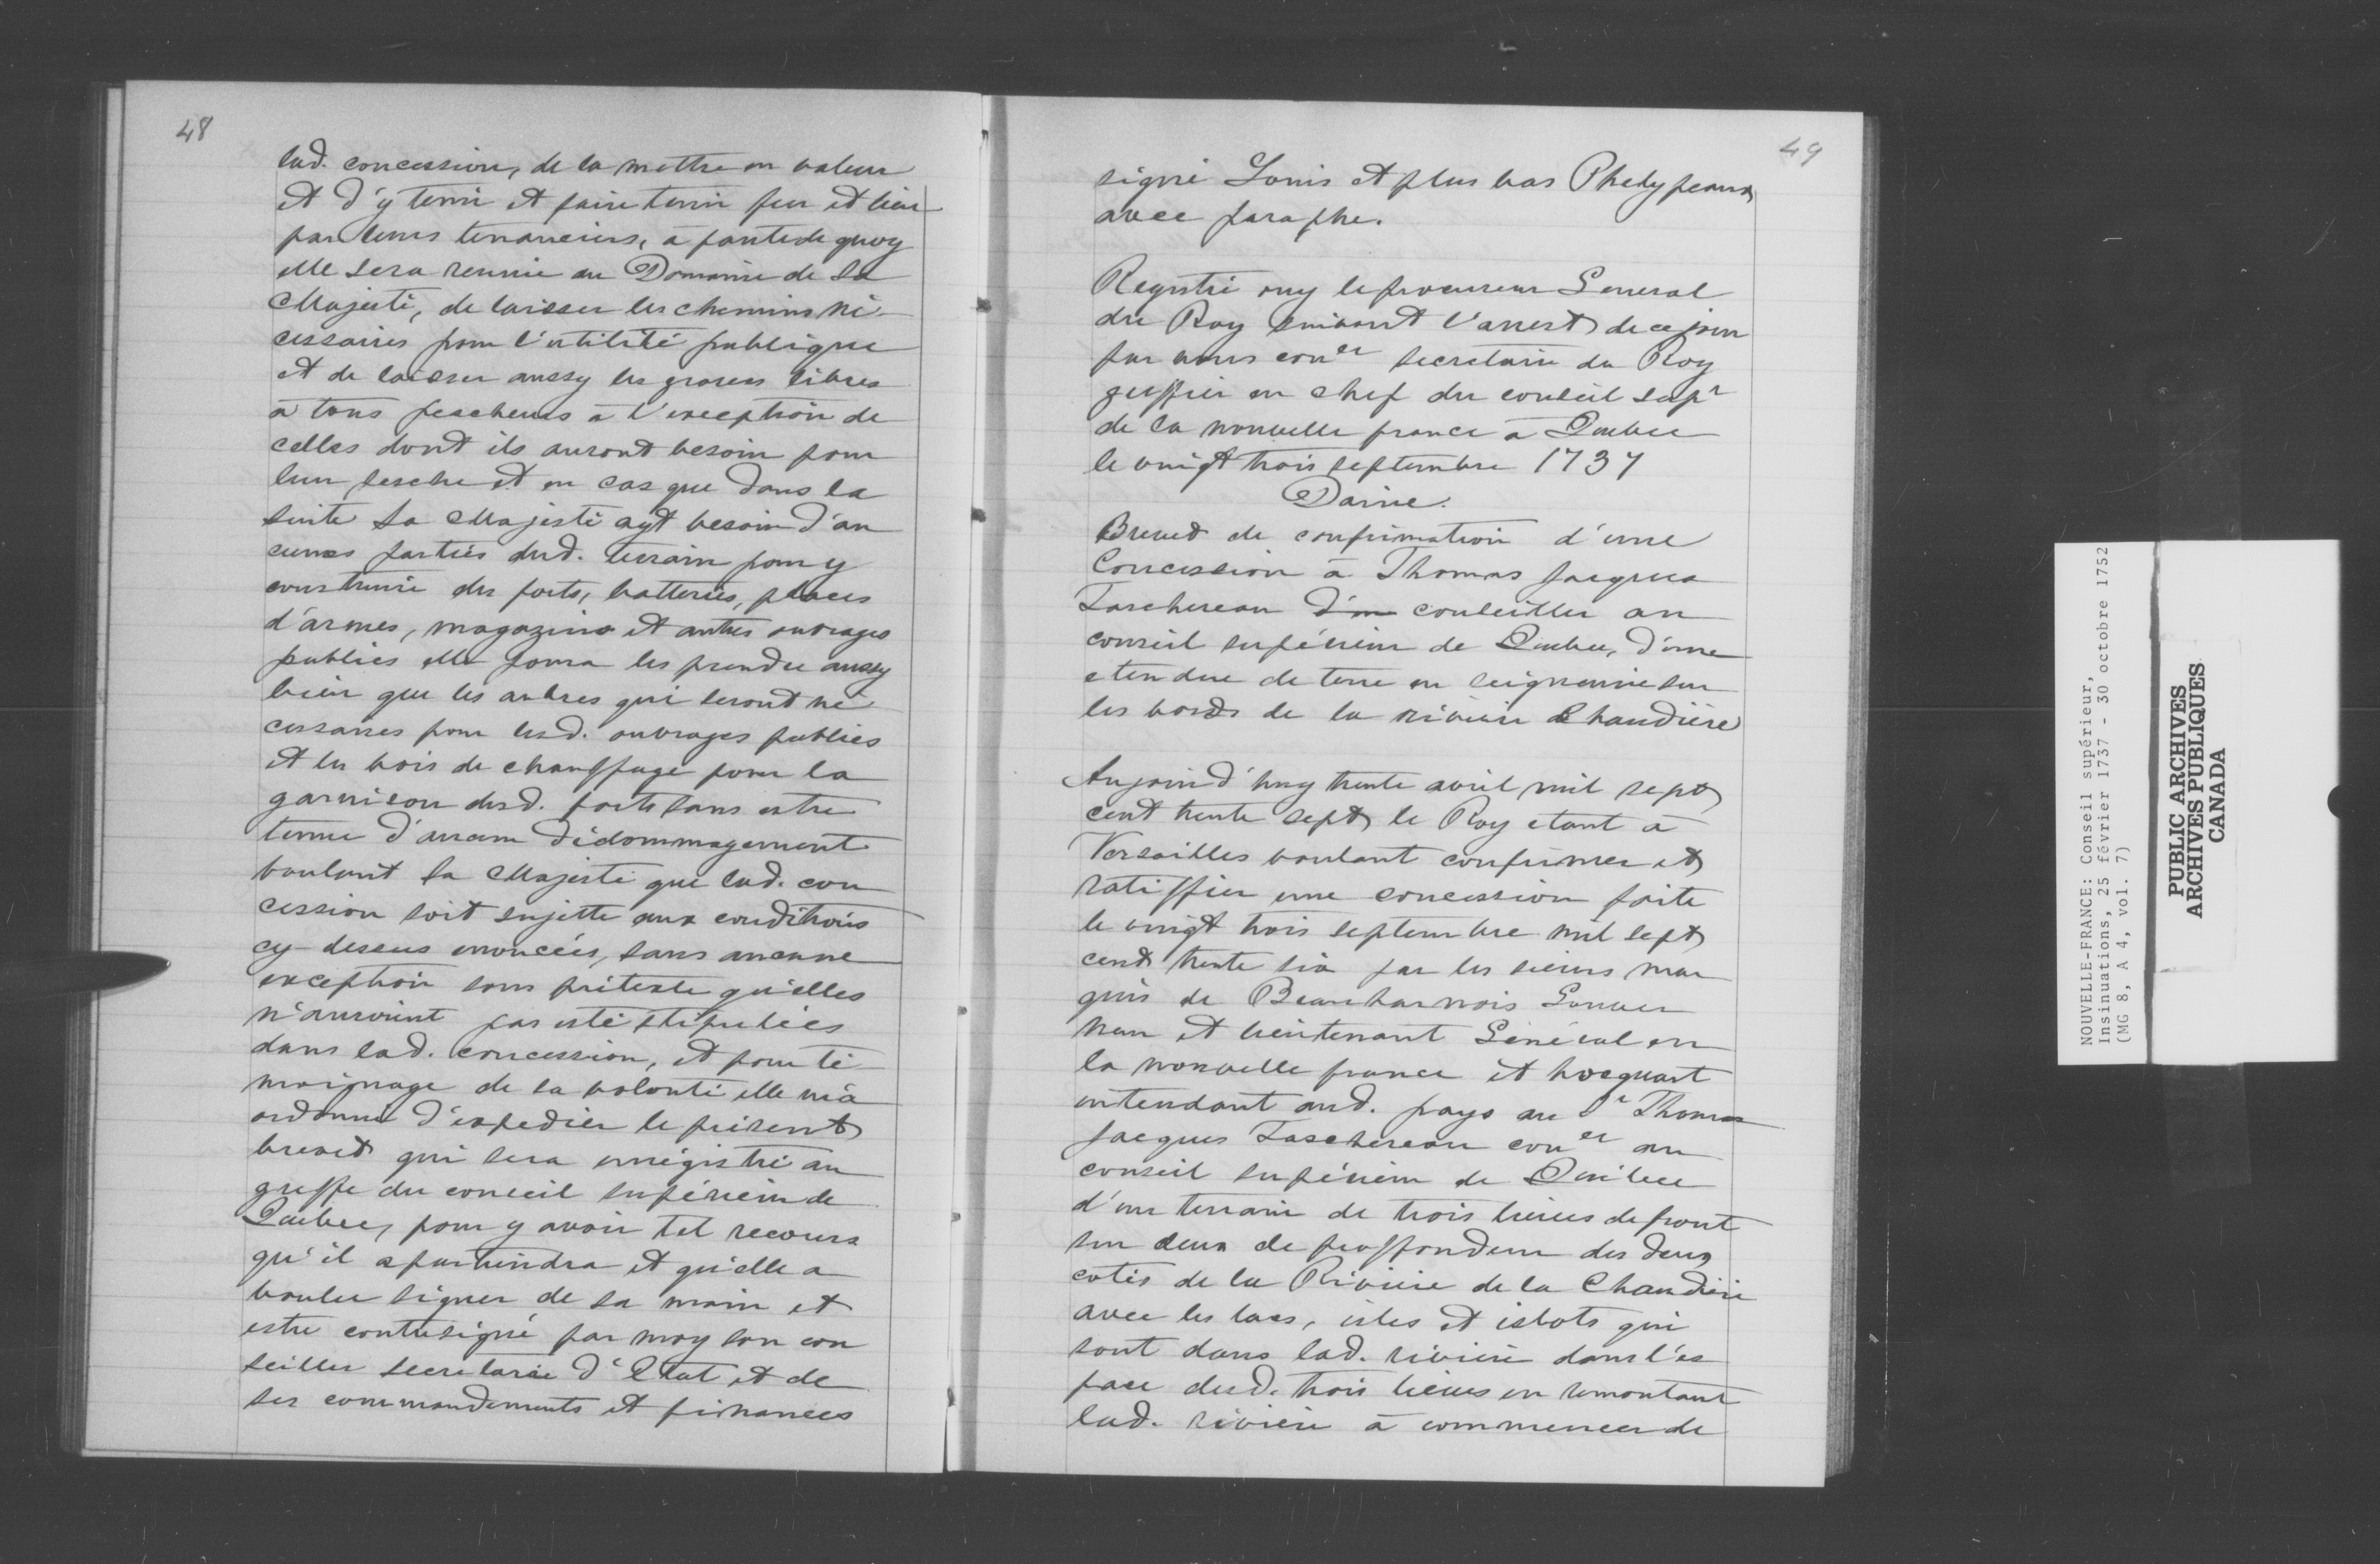 48
lad. concession, de la mettre en valeur
et d'y tenir et faire tenir feu et lieu
par leurs tenanciers, à faute de quoy
elle sera reunie au Domaine de Sa
Majesté, de laisser les chemins né-
cessaires pour l'utilité publique
et de laisser aussy les graves libres
à tous pescheurs à l'exception de
celles dont ils auront besoin pour
leur pesche et en cas que dans la
suite Sa Majesté ayt besoin d'au
cunes parties dud. terrain pour y
construire des forts, batteries, places
d'armes, magazins et autres ouvrages
publics elle poura les prendre aussy
bien que les arbres qui seront né
cessaires pour lesd. ouvrages publics
et les bois de chauffage pour la
garnison desd. forts sans estre
tenue d'aucun dédommagement
voulant sa Majesté que lad. con
cession soit sujette aux conditions
cy-dessus enoncées, sans aucune
exception sous prétexte qu'elles
n'auroient pas esté stipulées
dans lad. concession, et pour té
moignage de sa volonté elle m'a
ordonné d'expedier le présent
brevet qui sera enrégistré au
greffe du conseil supérieur de
Quebec, pour y avoir tel recours
qu'il apartiendra et qu'elle a
voulu signer de sa main et
estre contresigné par moy son con
seiller secretaire d'Etat et de
ses commandements et finances
49
signé Louis et plus bas Phelypeaux
avec paraphe.
Registré ouy le procureur General
du Roy suivant l'arrest de ce jour
par nous con^er secretaire du Roy
greffier en chef du conseil sup^r
de la nouvelle france à Quebec
le vingt trois septembre 1737
Daine.
Brevet de confirmation d'une
Concession à Thomas Jacques
Taschereau conseiller au
conseil supérieur de Quebec, d'une
etendue de terre en seigneurie sur
les bords de la rivière Chaudière
Aujourd'huy trente avril mil sept
cent trente sept le Roy etant à
Versailles voulant confirmer et
ratiffier une concession faite
le vingt trois septembre mil sept
cent trente six par les sieurs mar
quis de Beauharnois Gouver
neur et lieutenant Général en
la nouvelle france et hocquart
intendant aud. pays au S^r Thomas
Jacques Taschereau con^er au
conseil supérieur de Québec
d'un terrain de trois lieues de front
sur deux de proffondeur des deux
cotés de la Rivière de la Chaudière
avec les lacs, isles et islots qui
sont dans lad. rivière dans l'es
pace desd. trois lieues en remontant
lad. rivière à commencer de
NOUVELLE-FRANCE: Conseil supérieur,
Insinuations, 25 février 1737 - 30 octobre 1752
(MG 8, A 4, vol. 7)
PUBLIC ARCHIVES
ARCHIVES PUBLIQUES
CANADA